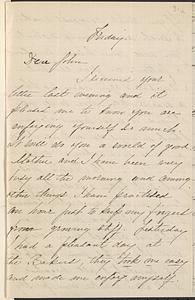 Friday.
Dear John
I received your
letter last evening and it
pleased me to know you are
enjoying yourself so much.
It will do you a world of good.
Mother and I have been very
busy all the morning and among
other things I have practised
an hour just to keep my fingers
from growing stiff. Yesterday
I had a pleasant day at
the Bakers they took me easy
and made me enjoy myself.